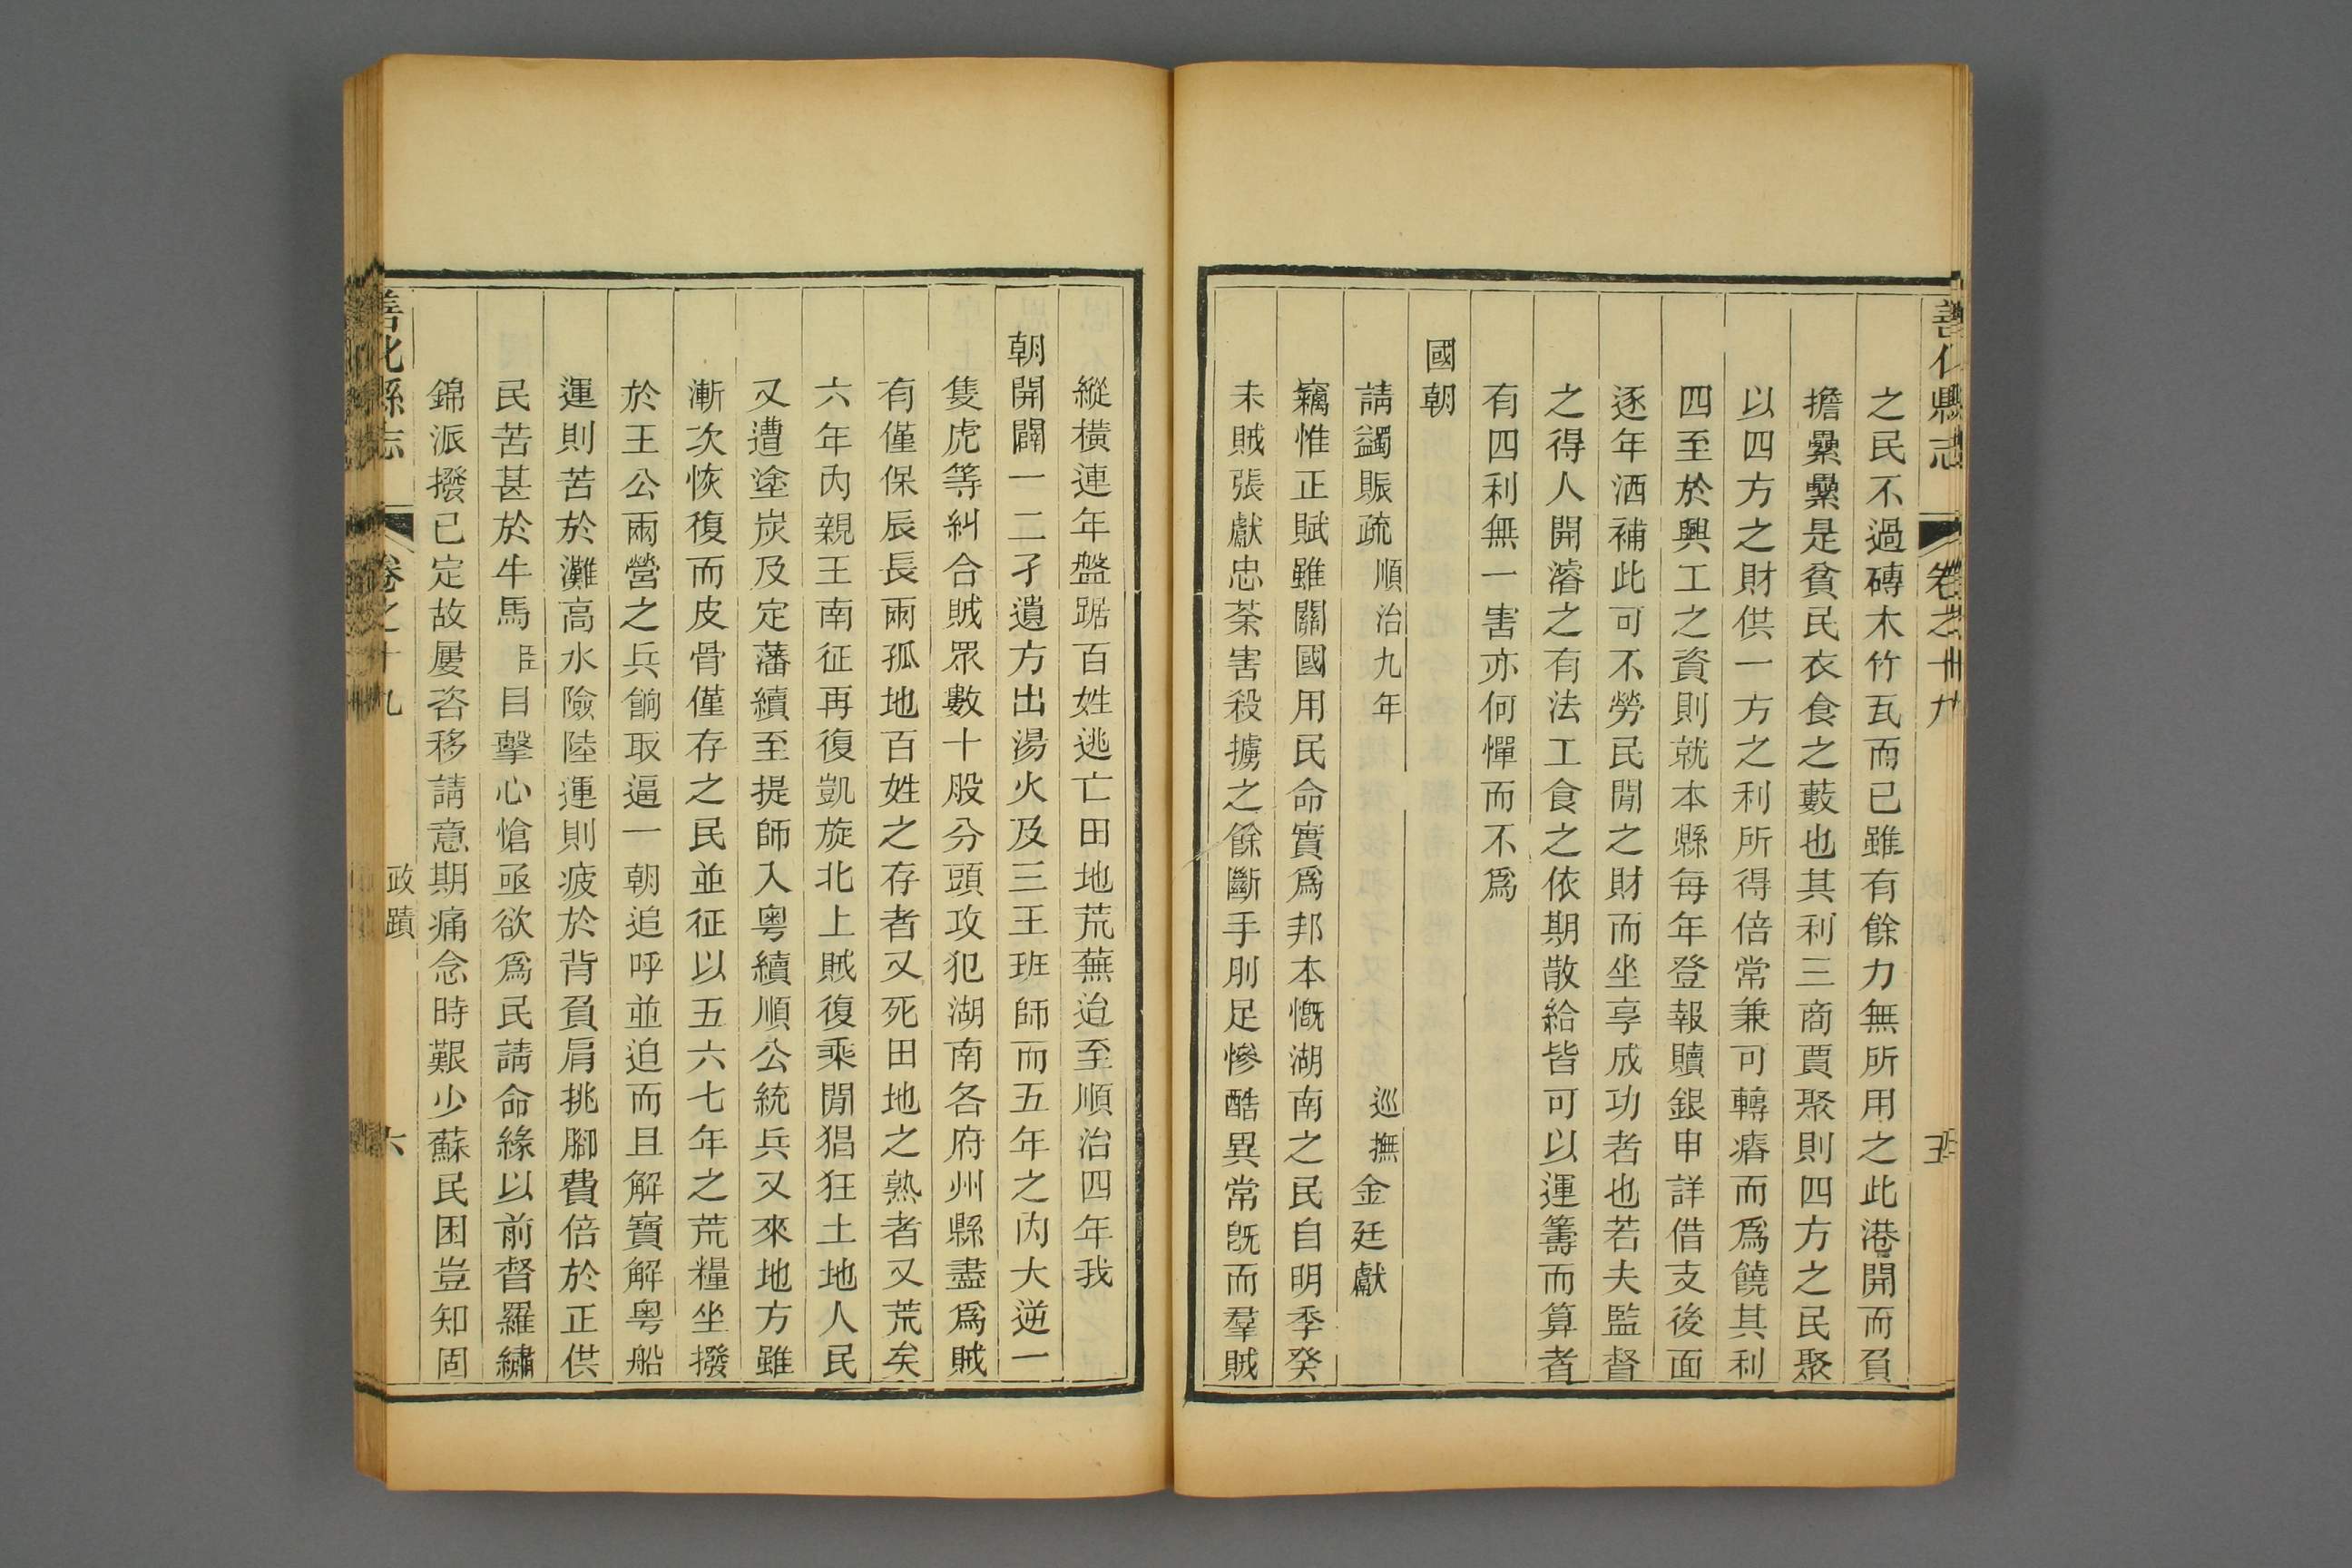 善化縣志 卷之十九 五
之民不過磚木竹瓦而已雖有餘力無所用之此港開而負
擔纍纍是貧民衣食之藪也其利三商賈聚則四方之民聚
以四方之財供一方之利所得倍常兼可轉瘠而爲饒其利
四至於興工之資則就本縣每年登報贖銀申詳借支後面
逐年洒補此可不勞民間之財而坐享成功者也若夫監督
之得人開濬之有法工食之依期散給皆可以運籌而算者
有四利無一害亦何憚而不爲
國朝
請蠲賑疏 順治九年 巡撫金廷獻
竊惟正賦雖關國用民命實爲邦本慨湖南之民自明季癸
未賊張獻忠荼害殺擄之餘斷手刖足慘酷異常旣而羣賊
縱橫連年盤踞百姓逃亡田地荒蕪迨至順治四年我
朝開闢一二孑遺方出湯火及三王班師而五年之內大逆一
隻虎等糾合賊眾數十股分頭攻犯湖南各府州縣盡爲賊
有僅保辰長兩孤地百姓之存者又死田地之熟者又荒矣
六年內親王南征再復凱旋北上賊復乘間猖狂土地人民
又遭塗炭及定藩續至提師入粤續順公統兵又來地方雖
漸次恢復而皮骨僅存之民並征以五六七年之荒糧坐撥
於王公兩營之兵餉取逼一朝追呼並迫而且解寶解粤船
運則苦於灘高水險陸運則疲於背負肩挑腳費倍於正供
民苦甚於牛馬臣目擊心愴亟欲爲民請命緣以前督羅繡
錦派撥已定故屢咨移請意期痛念時艱少蘇民困豈知固
善化縣志 卷之十九 政蹟 六